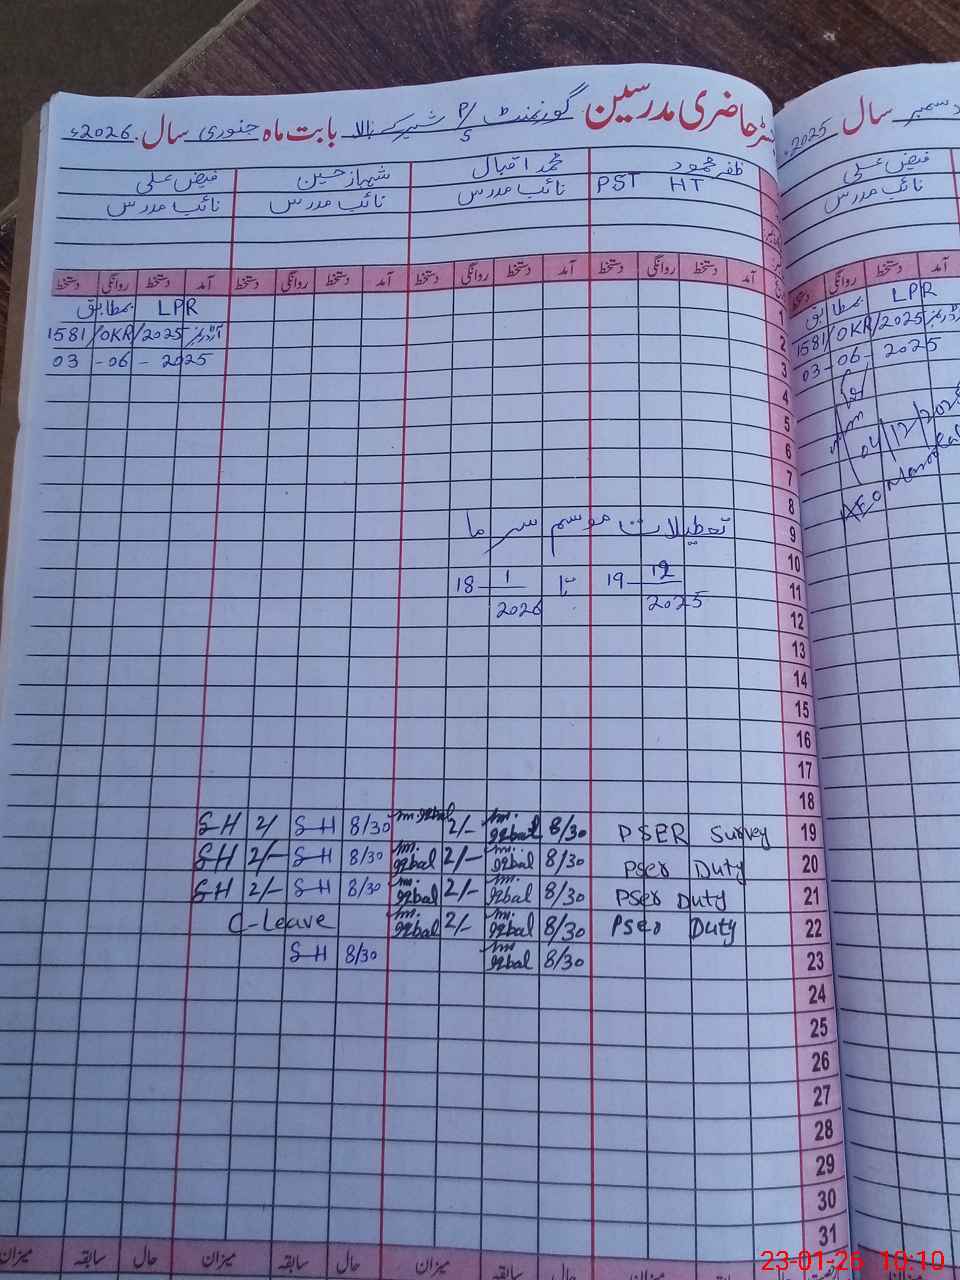 رجسٹر حاضری مدرسین گورنمنٹ P/S شیرکے بالا بابت ماہ جنوری سال 2026ء
ظفر محمود محمد اقبال شہباز حسین فیض علی
PST HT نائب مدرس نائب مدرس نائب مدرس
آمد دستخط روانگی دستخط آمد دستخط روانگی دستخط آمد دستخط روانگی دستخط آمد دستخط روانگی دستخط
1 LPR بمطابق
2 آرڈر نمبر 1581/OKR/2025
3 03-06-2025
4
5
6
7
8
9 تعطیلات موسم سرما
10
11 19-12-2025 تا 18-1-2026
12
13
14
15
16
17
18
19 PSER Survey 8/30 M. Iqbal 2/- M. Iqbal 8/30 SH 2/ SH
20 Pser Duty 8/30 M. Iqbal 2/- M. Iqbal 8/30 SH 2/- SH
21 Pser Duty 8/30 M. Iqbal 2/- M. Iqbal 8/30 SH 2/- SH
22 Pser Duty 8/30 M. Iqbal 2/- M. Iqbal C-Leave
23 8/30 M. Iqbal 8/30 SH
24
25
26
27
28
29
30
31
میزان حال سابقہ میزان حال سابقہ میزان حال سابقہ میزان
دسمبر سال 2025ء
فیض علی
نائب مدرس
آمد دستخط
LPR بمطابق
آرڈر نمبر 1581/OKR/2025
03-06-2025
04/12/2025
AEO
23-01-26 10:10